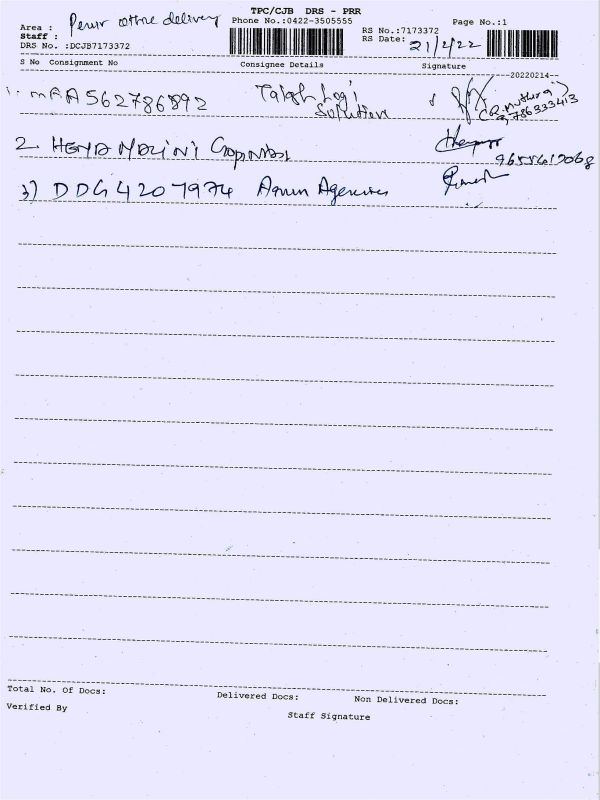 TPC/CJB DRS - PRR
Area : office delivery Phone No.:0422-3505555 RS No.:7173372 Page No.:1
Staff : RS Date: 21/2/22
DRS No. :DCJB7173372
S No Consignment No Consignee Details Signature
20220214
1. MAA562786892 Logi
Solution
3786333413
2. HEMA MALINI
9655612068
3) DDG4207974 Agencies
Total No. Of Docs: Delivered Docs: Non Delivered Docs:
Verified By Staff Signature